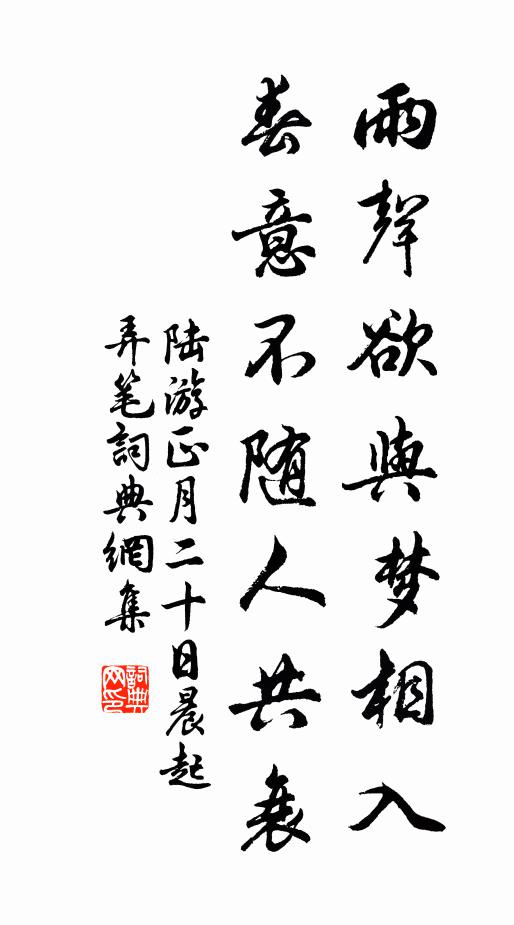 雨聲欲與梦相入
春意不随人共衰
陆游正月二十日晨起
弄笔詞典網集
詞典
网印